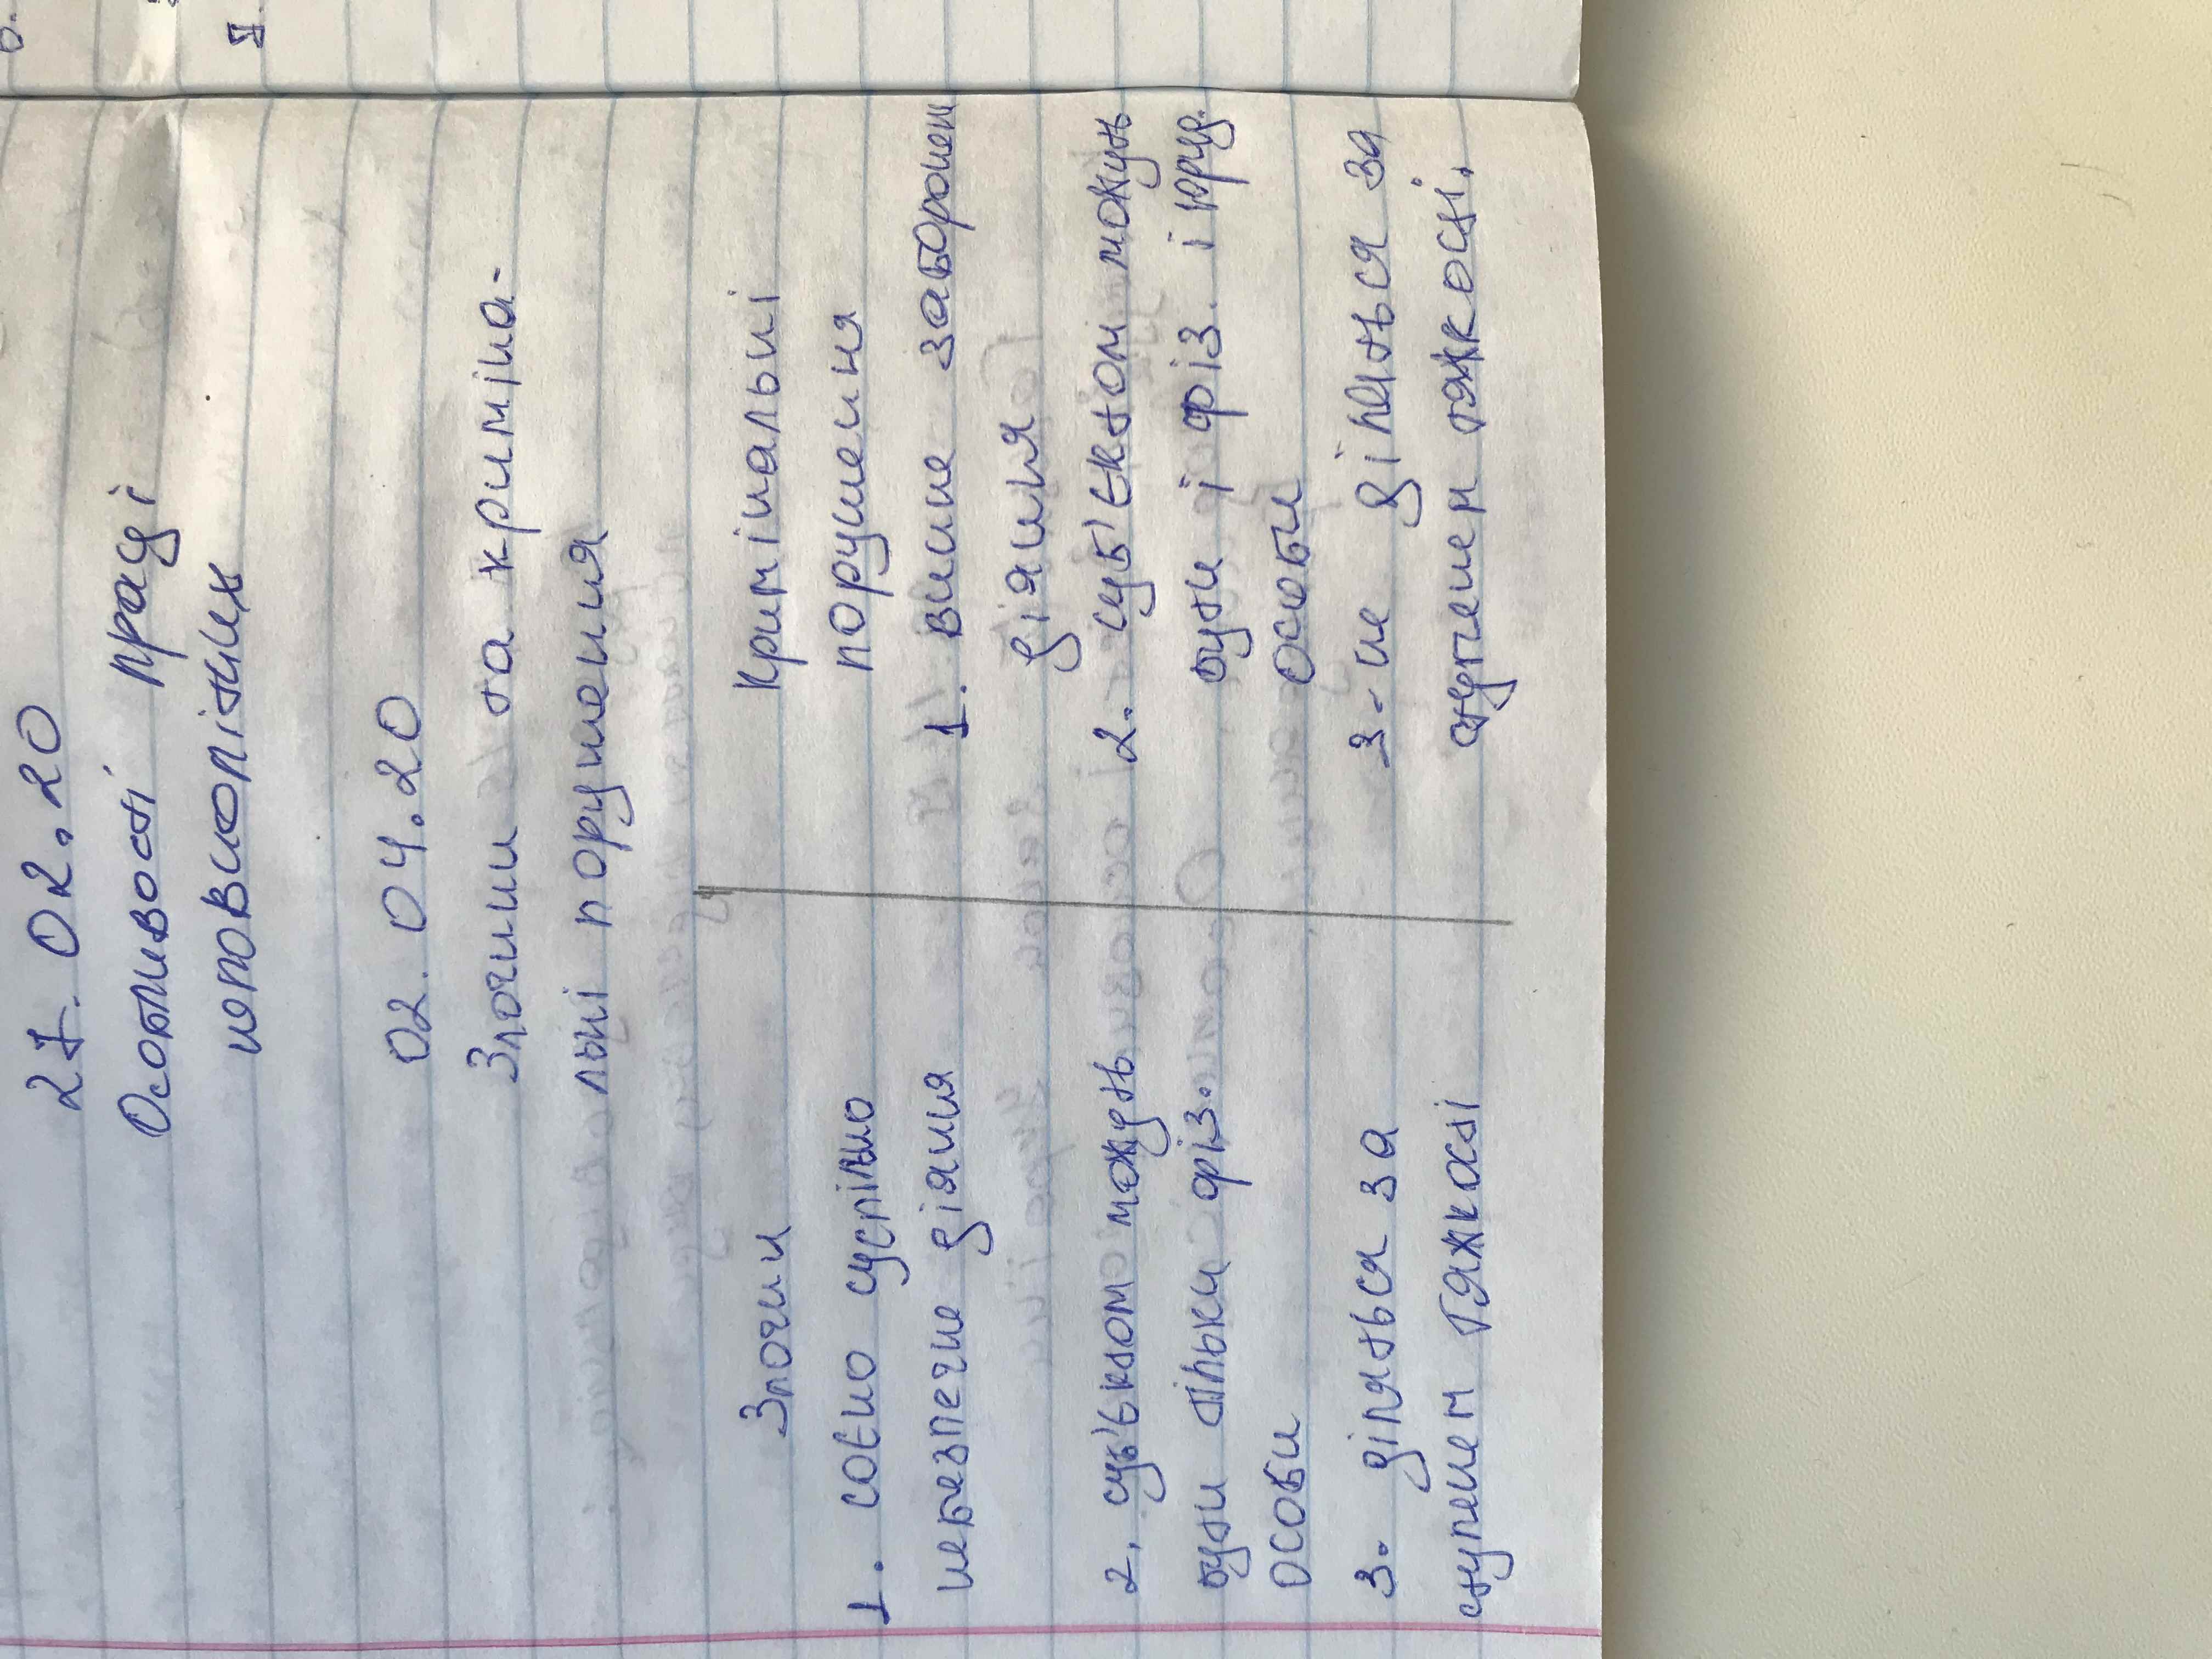 27.02.20
Особливості праці
неповнолітних
02.04.20
Злочини та криміна-
льні порушення
Злочини
1. соєно суспільно
небезпечне діяння
2. суб'єктом можуть
бути тільки фіз.
особи
3. діляться за
ступенем тяжкості
Кримінальні
порушення
1. винне заборонен
діяння
2. суб'єктом можуть
бути і фіз. і юрид.
особи
3 - не діляться за
ступенем тяжкості.